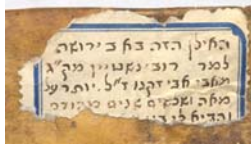 האילן הזה בא בירושה
למר רובינשטיין מה"ג
מאבי אבי זקנו ז"ל. יותר על
מאה ושבשים שנים מקודם
והביא לי